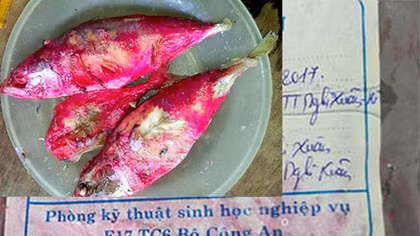 2017.
TT Nghi Xuân, H
Xuân
Nghi Xuân
Phòng kỹ thuật sinh học nghiệp vụ
E17 TC6 Bộ Công An